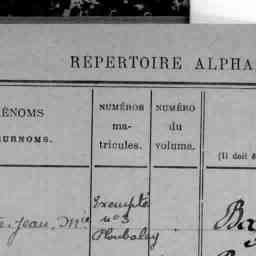 RÉPERTOIRE ALPHA
ÉNOMS
URNOMS.
NUMÉROS
ma-
tricules.
NUMÉRO
du
volume.
(Il doit ê
Jean, M
Exempté
n° 3
Ploubalay